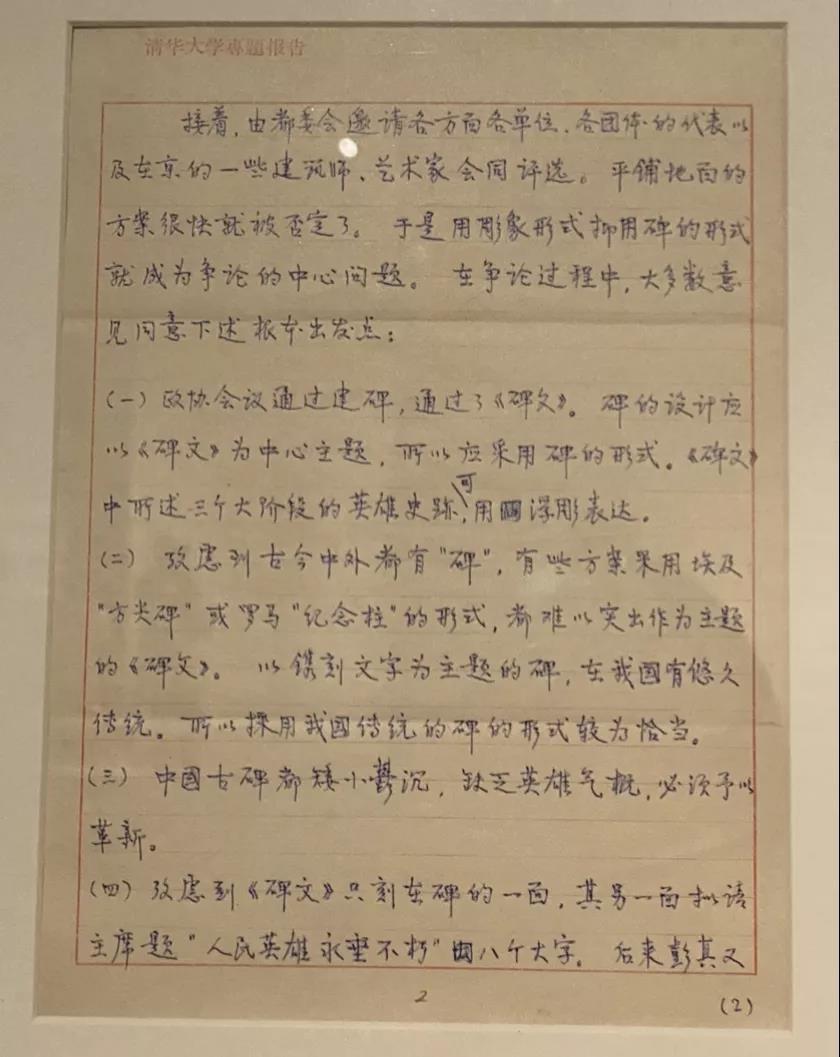 清华大学專題报告
接着,由都委会邀请各方面各单位、各团体的代表以
及在京的一些建筑师、艺术家会同评选。平铺地面的
方案很快就被否定了。于是用彫象形式抑用碑的形式
就成为争论的中心问题。在争论过程中,大多数意
见同意下述根本出发点:
(一)政协会议通过建碑,通过了《碑文》。碑的设计应
以《碑文》为中心主题,所以应采用碑的形式。《碑文》
中所述三个大阶段的英雄史跡,可用浮彫表达。
(二)攷虑到古今中外都有"碑",有些方案采用埃及
"方尖碑"或罗马"纪念柱"的形式,都难以突出作为主题
的《碑文》。以镌刻文字为主题的碑,在我國有悠久
传统。所以採用我國传统的碑的形式较为恰当。
(三)中國古碑都矮小鬱沉,缺乏英雄气概,必须予以
革新。
(四)攷虑到《碑文》只刻在碑的一面,其另一面拟请
主席题"人民英雄永垂不朽"八个大字。后来彭真又
2
(2)